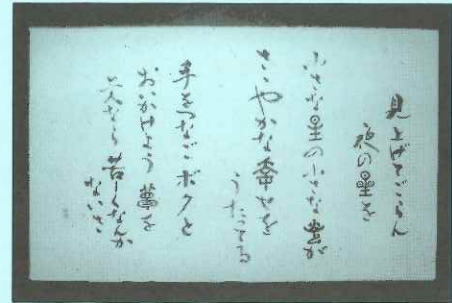 見上げてごらん
夜の星を
小さな星の小さな光が
ささやかな幸せを
うたってる
手をつなごボクと
おいかけよう夢を
二人なら苦しくなんか
ないさ